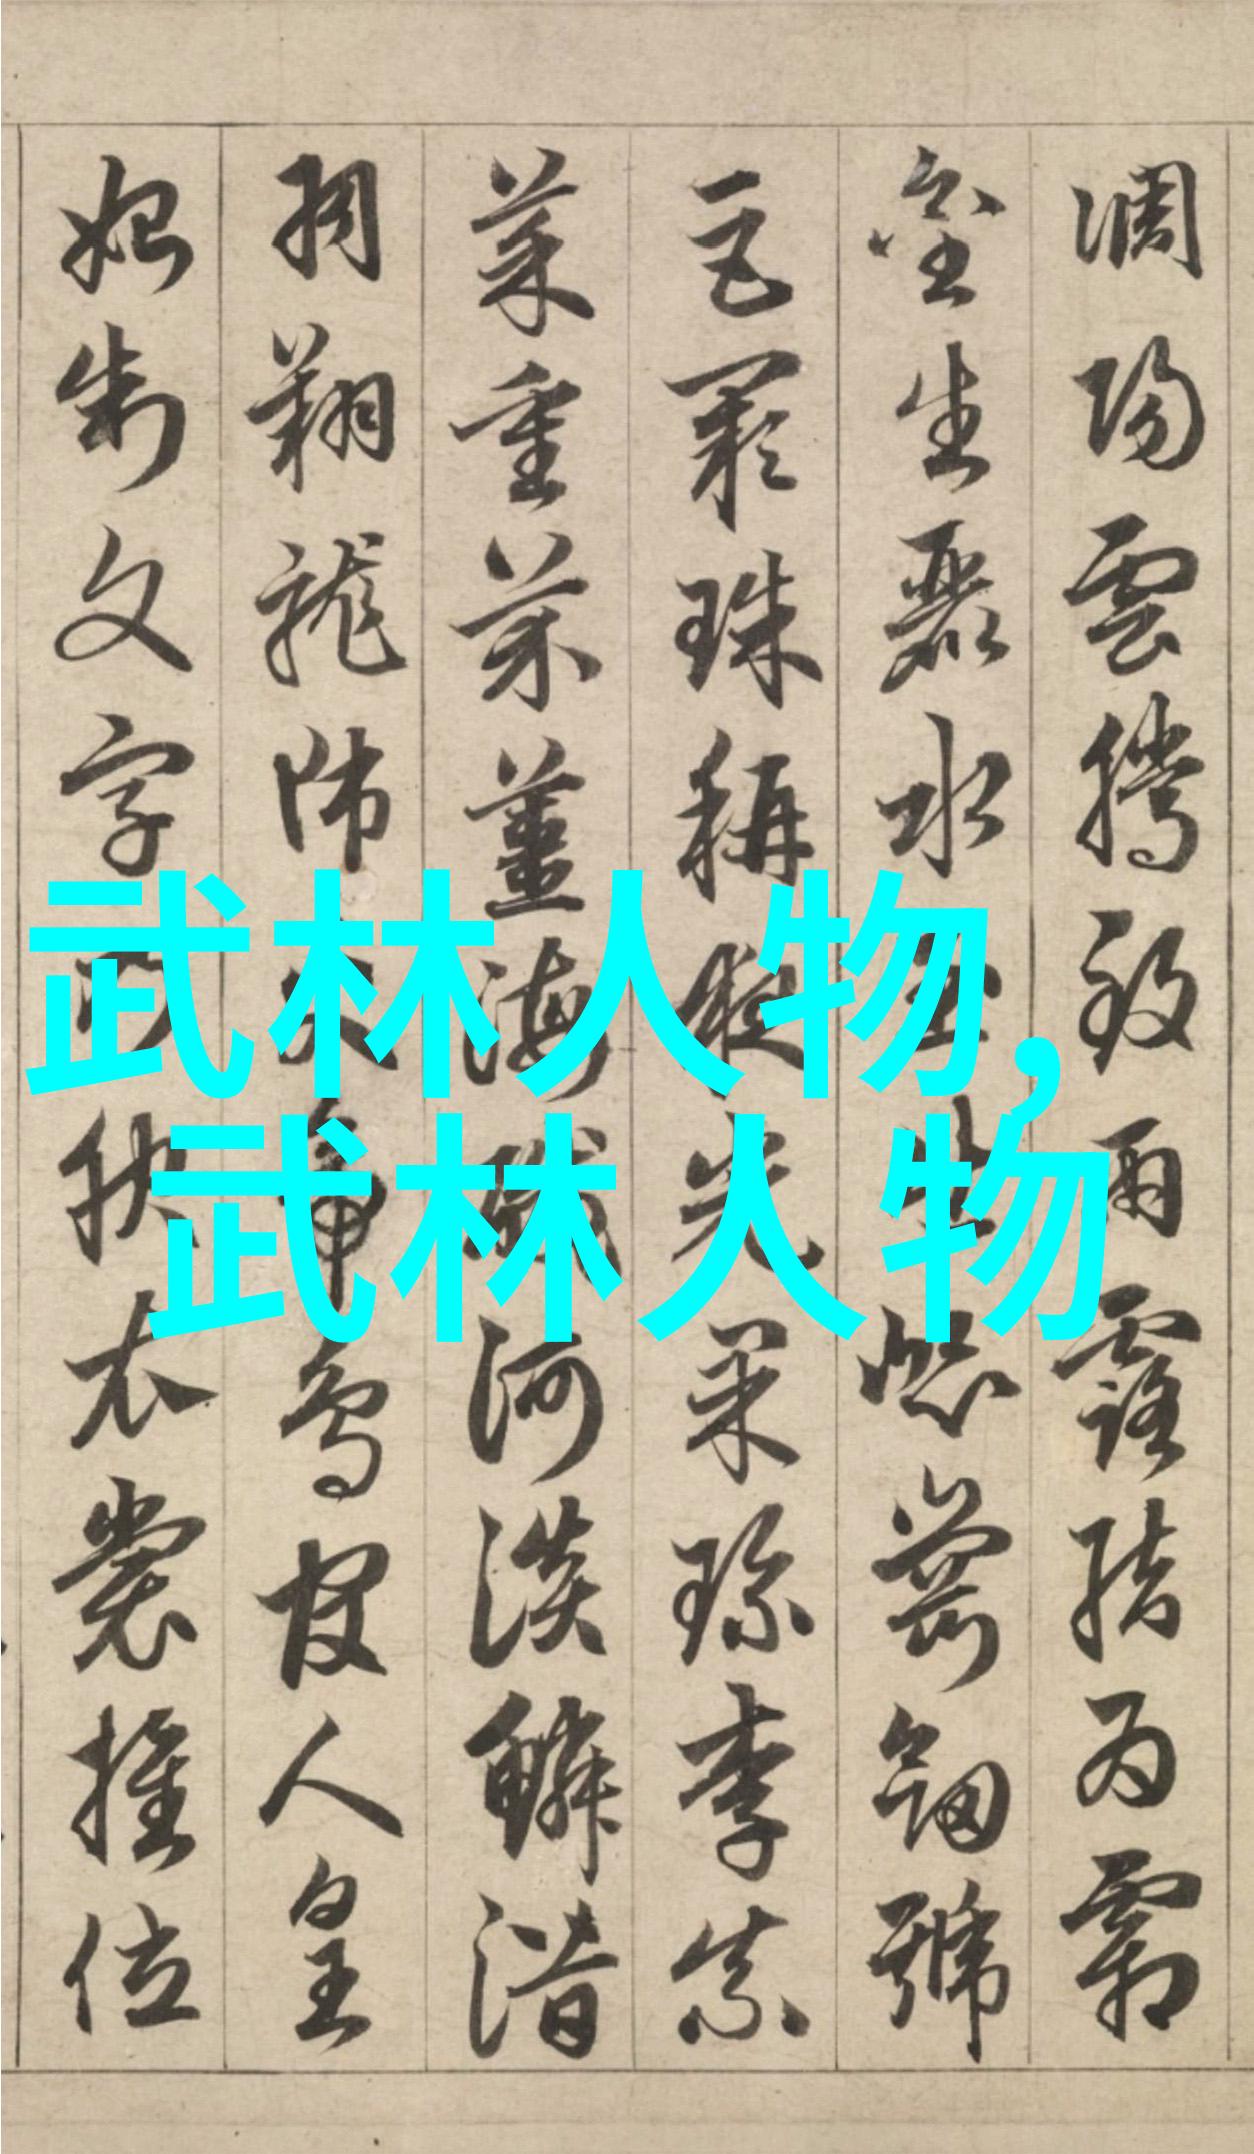 調陽雲騰致雨露結為霜
金生麗水玉出崑崗劒號
巨闕珠稱夜光果珍李柰
菜重芥薑海鹹河淡鱗潛
羽翔龍師火帝鳥官人皇
始制文字乃服衣裳推位
武林人物,
武林人物